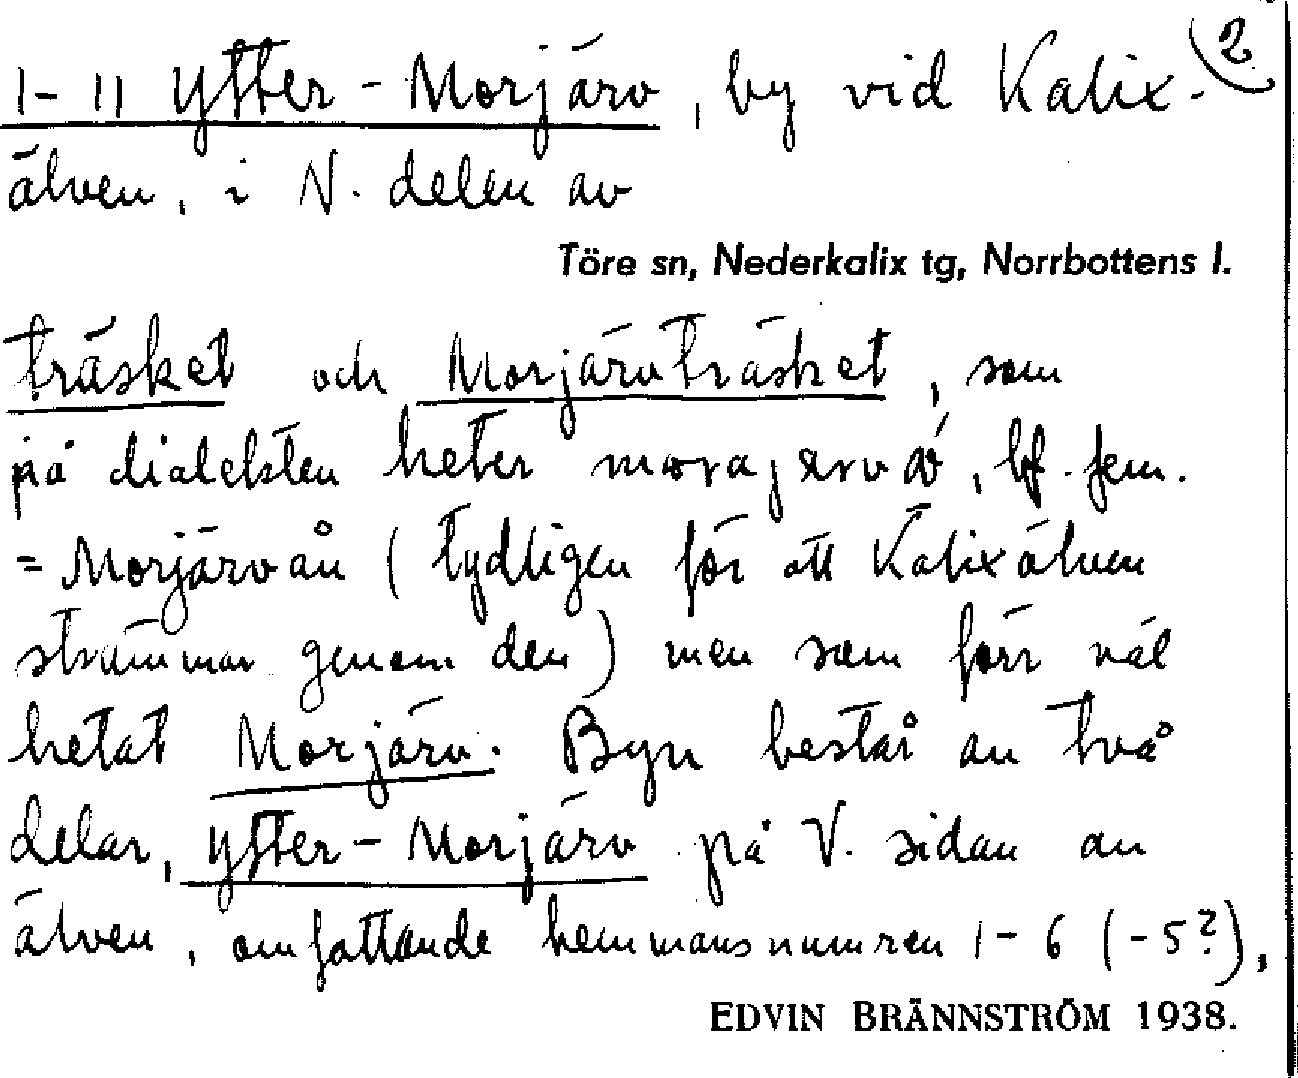 2
1-11 Ytter-Morjärv, by vid Kalix-
älven, i N. delen av
Töre sn, Nederkalix tg, Norrbottens l.
träsket och Morjärvträsket, som
på dialekten heter , bf. fem.
= Morjärvån (tydligen för att Kalixälven
strömmar genom den) men som förr väl
hetat Morjärv. Byn består av två
delar, Ytter-Morjärv på V. sidan av
älven, omfattande hemmansnumren 1-6 (-5?),
EDVIN BRÄNNSTRÖM 1938.